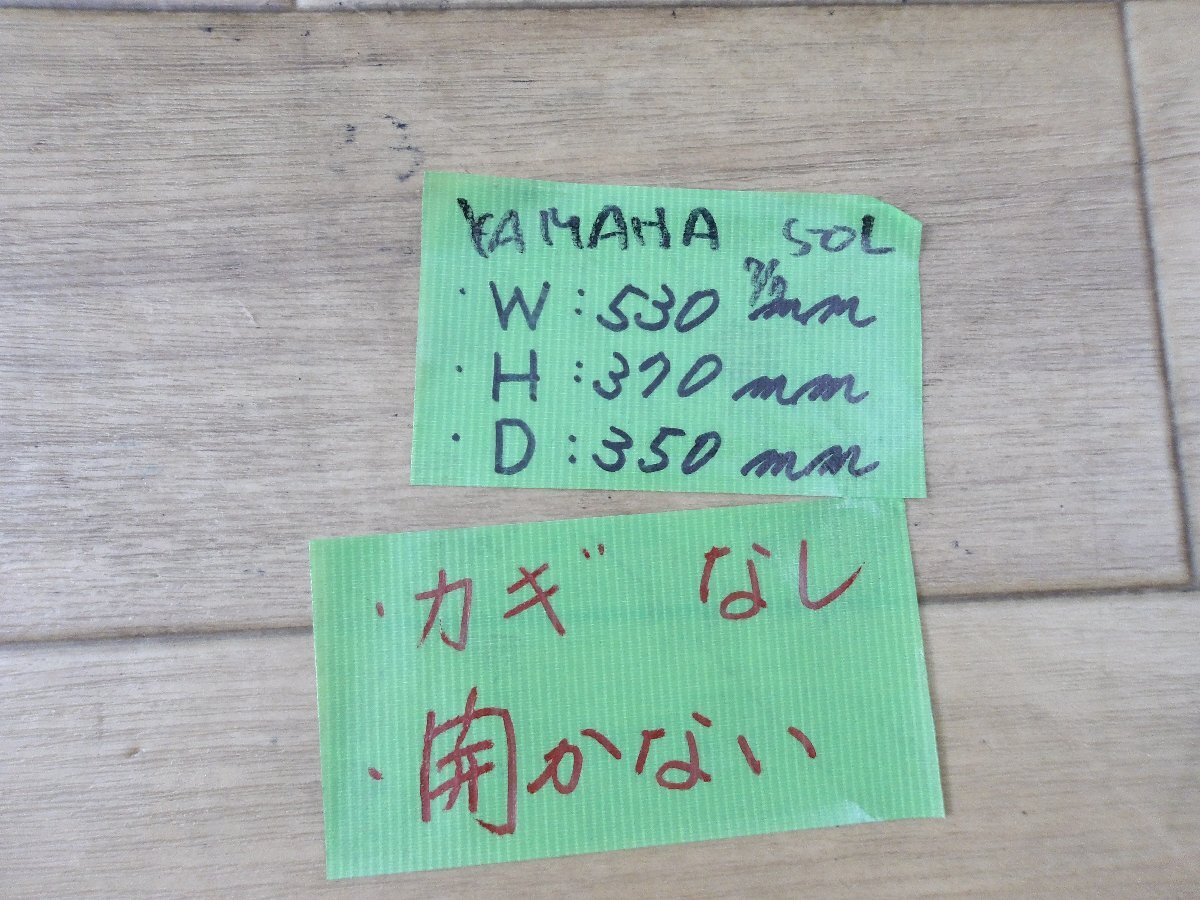 YAMAHA 50L
・W:530 mm
・H:370 mm
・D:350 mm
・カギ なし
・開かない